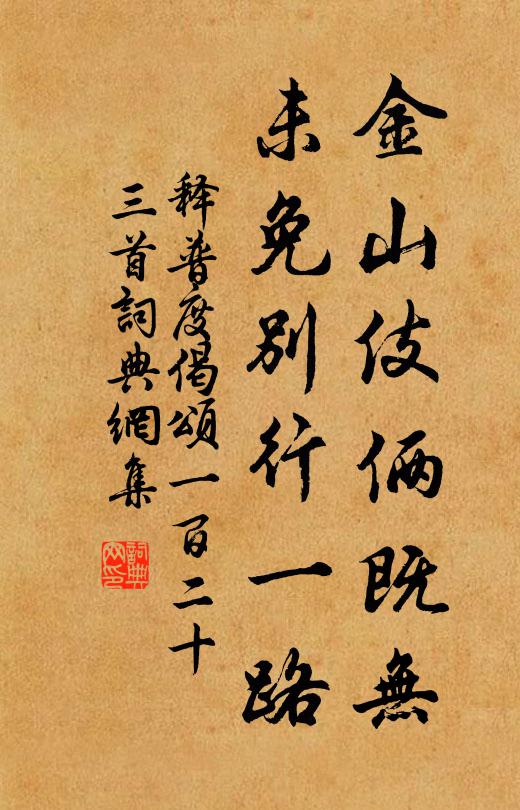 金山伎倆既無
未免別行一路
释普度偈頌一百二十
三首詞典網集
詞典
网印